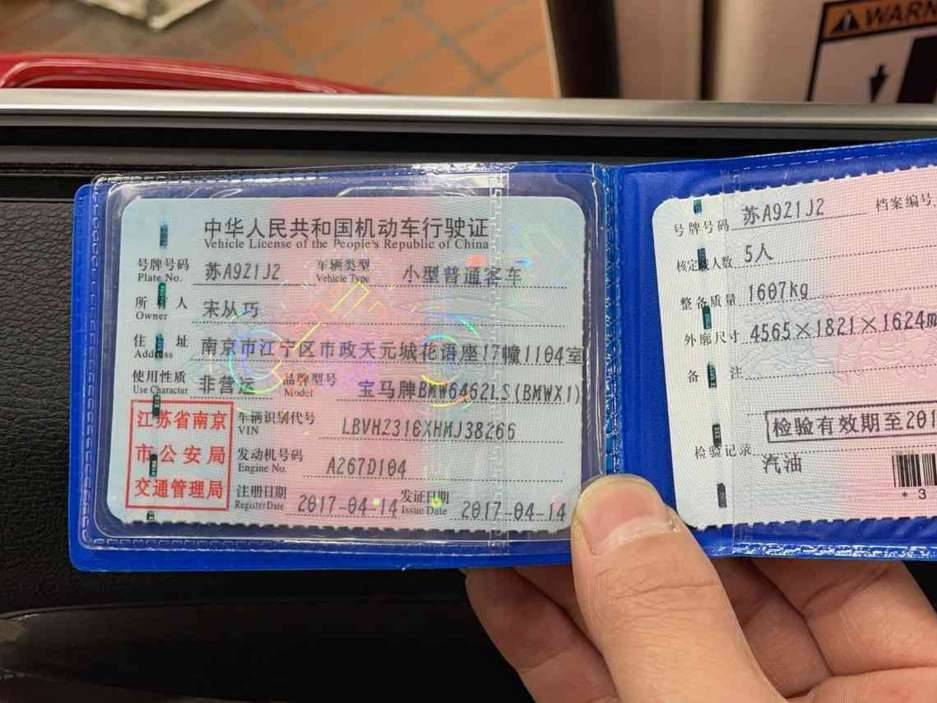 WARN
中华人民共和国机动车行驶证
Vehicle License of the People's Republic of China
号牌号码 苏A9Z1J2 车辆类型 小型普通客车
Plate No. Vehicle Type
所有人 宋从巧
Owner
住址 南京市江宁区市政天元城花语座17幢1104室
Address
使用性质 非营运 品牌型号 宝马牌BMW6462LS(BMWX1)
Use Character Model
江苏省南京
市公安局
交通管理局
车辆识别代号 LBVHZ316XHMJ38266
VIN
发动机号码 A267D104
Engine No.
注册日期 2017-04-14 发证日期 2017-04-14
Register Date Issue Date
号牌号码 苏A9Z1J2 档案编号
核定载人数 5人
整备质量 1607kg
外廓尺寸 4565×1821×1624m
备注
检验有效期至201
检验记录
汽油
*3